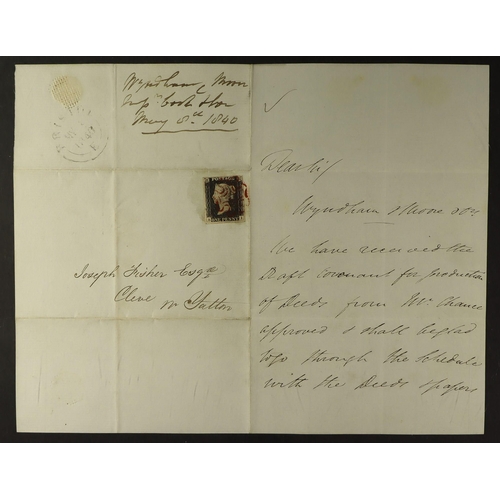 Wyndham & Moon
May 8th 1840
POSTAGE
ONE PENNY
Joseph Fisher Esqre
Cleve nr Yatton
Dear Sir
Wyndham & Moore
We have received the
Draft covenant for production
of Deeds from Mr. Chance
approved & shall be glad
to go through the Schedule
with the Deeds & papers